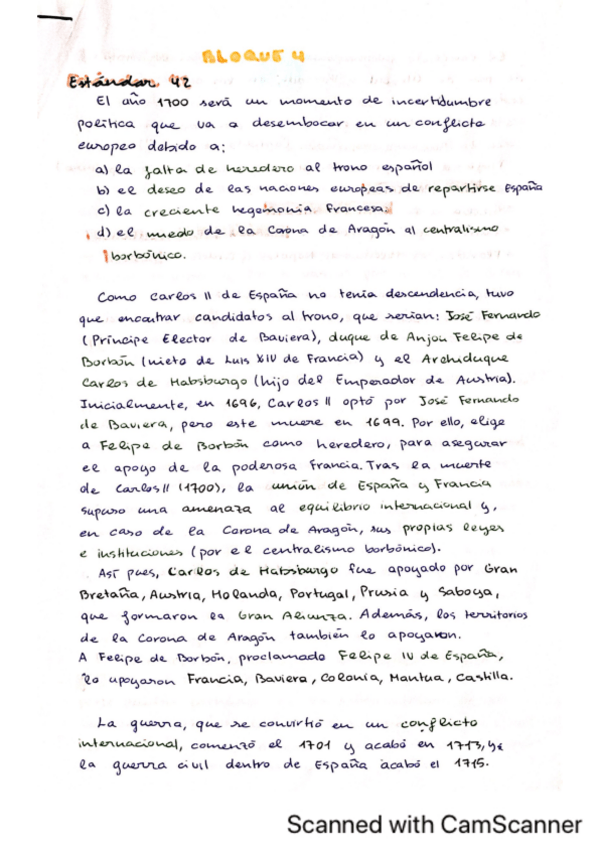 BLOQUE 4
Estándar 42
El año 1700 será un momento de incertidumbre
política que va a desembocar en un conflicto
europeo debido a:
a) la falta de heredero al trono español
b) el deseo de las naciones europeas de repartirse España
c) la creciente hegemonía francesa.
d) el miedo de la Corona de Aragón al centralismo
borbónico.
Como Carlos II de España no tenía descendencia, tuvo
que encontrar candidatos al trono, que serían: José Fernando
(Príncipe Elector de Baviera), duque de Anjou Felipe de
Borbón (nieto de Luis XIV de Francia) y el Archiduque
Carlos de Habsburgo (hijo del Emperador de Austria).
Inicialmente, en 1696, Carlos II optó por José Fernando
de Baviera, pero este muere en 1699. Por ello, elige
a Felipe de Borbón como heredero, para asegurar
el apoyo de la poderosa Francia. Tras la muerte
de Carlos II (1700), la unión de España y Francia
supuso una amenaza al equilibrio internacional y,
en caso de la Corona de Aragón, sus propias leyes
e instituciones (por el centralismo borbónico).
Así pues, Carlos de Habsburgo fue apoyado por Gran
Bretaña, Austria, Holanda, Portugal, Prusia y Saboya,
que formaron la Gran Alianza. Además, los territorios
de la Corona de Aragón también lo apoyaron.
A Felipe de Borbón, proclamado Felipe IV de España,
lo apoyaron Francia, Baviera, Colonia, Mantua, Castilla.
La guerra, que se convirtió en un conflicto
internacional, comenzó el 1701 y acabó en 1713, y
la guerra civil dentro de España acabó el 1715.
Scanned with CamScanner